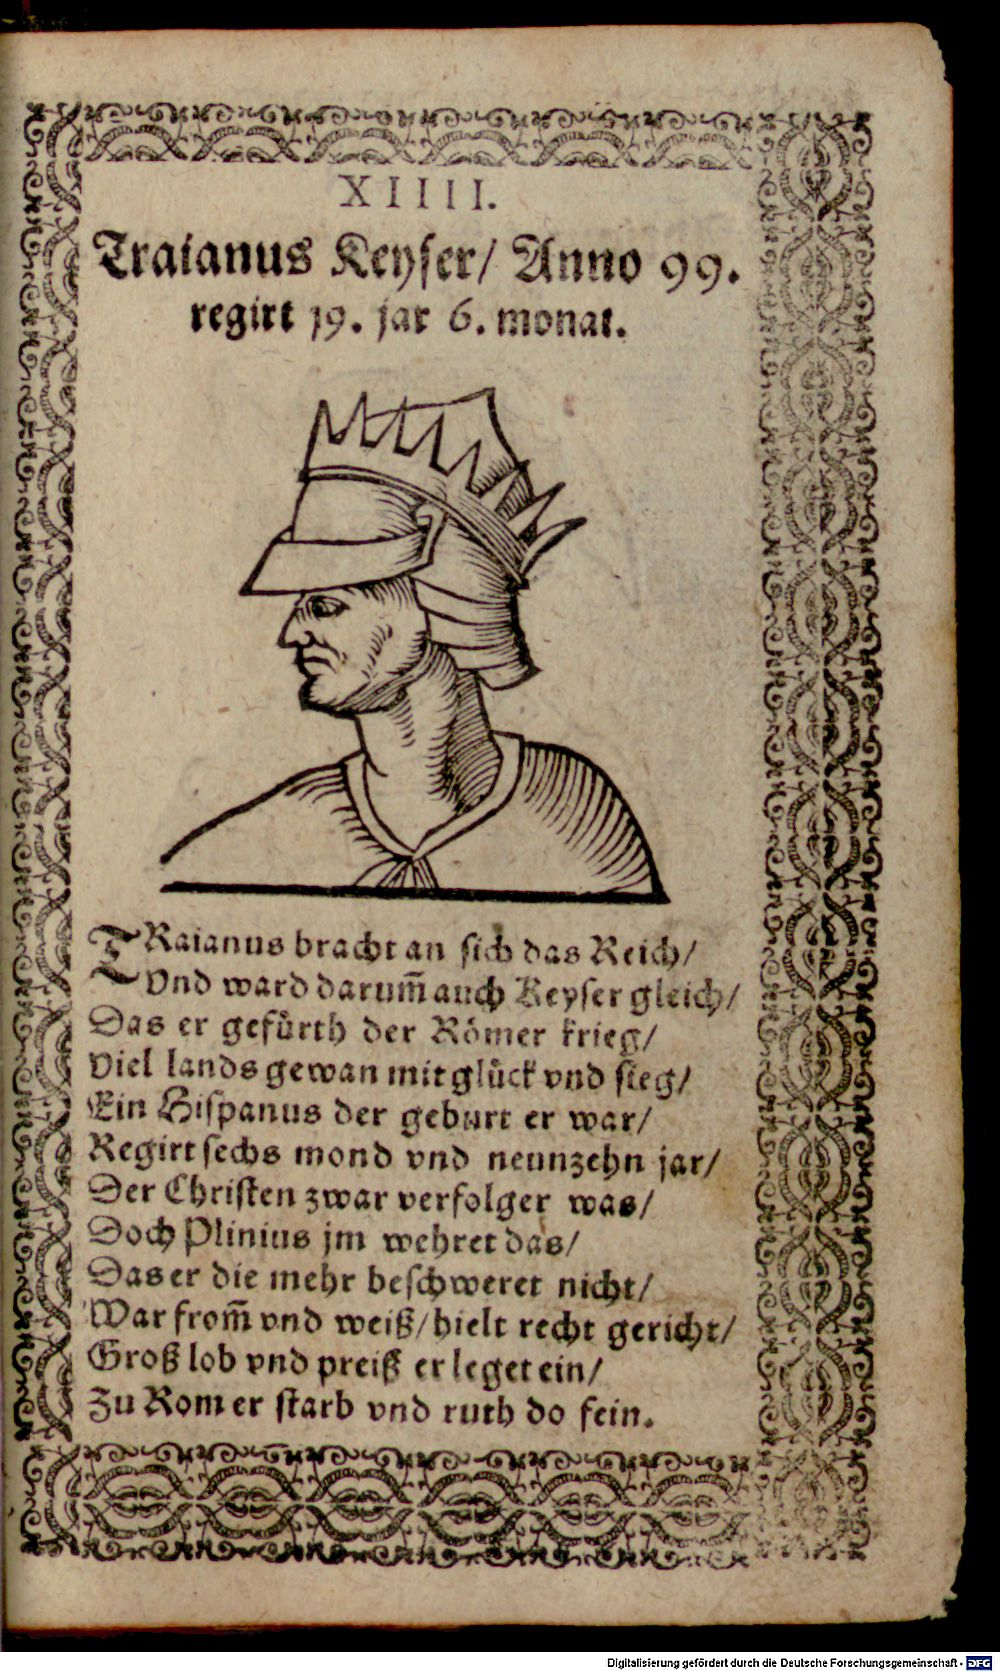 XIIII.
Traianus Keyser/ Anno 99.
regirt 19. jar 6. monat.
TRaianus bracht an sich das Reich/
Vnd ward darum̃ auch Keyser gleich/
Das er gefürth der Römer krieg/
Viel lands gewan mit glück vnd sieg/
Ein Hispanus der geburt er war/
Regirt sechs mond vnd neunzehn jar/
Der Christen zwar verfolger was/
Doch Plinius jm wehret das/
Das er die mehr beschweret nicht/
War from̃ vnd weiß/ hielt recht gericht/
Groß lob vnd preiß er leget ein/
Zu Rom er starb vnd ruth do fein.
Digitalisierung gefördert durch die Deutsche Forschungsgemeinschaft - DFG